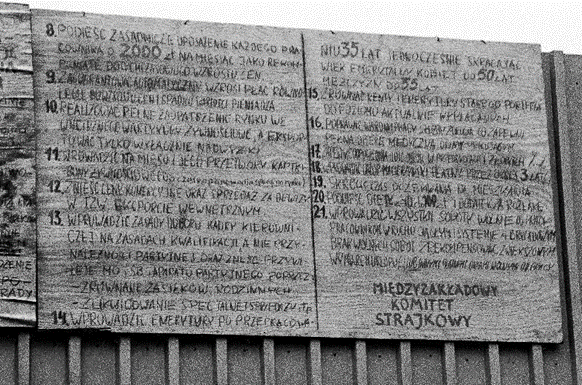 8. PODNIEŚĆ ZASADNICZE UPOSAŻENIE KAŻDEGO PRA-
COWNIKA O 2000 zł NA MIESIĄC JAKO REKOM-
PENSATĘ DOTYCHCZASOWEGO WZROSTU CEN.
9. ZAGWARANTOWAĆ AUTOMATYCZNY WZROST PŁAC RÓWNO-
LEGLE DO WZROSTU CEN I SPADKU WARTOŚCI PIENIĄDZA
10. REALIZOWAĆ PEŁNE ZAOPATRZENIE RYNKU WE-
WNĘTRZNEGO W ARTYKUŁY ŻYWNOŚCIOWE, A EKSPOR-
TOWAĆ TYLKO WYŁĄCZNIE NADWYŻKI
11. WPROWADZIĆ NA MIĘSO I JEGO PRZETWORY KARTKI-
BONY ŻYWNOŚCIOWE
12. ZNIEŚĆ CENY KOMERCYJNE ORAZ SPRZEDAŻ ZA DEWIZY
W TZW. EKSPORCIE WEWNĘTRZNYM
13. WPROWADZIĆ ZASADY DOBORU KADRY KIEROWNI-
CZEJ NA ZASADACH KWALIFIKACJI A NIE PRZY-
NALEŻNOŚCI PARTYJNEJ ORAZ ZNIEŚĆ PRZYWI-
LEJE MO, SB, APARATU PARTYJNEGO POPRZEZ:
- ZRÓWNANIE ZASIŁKÓW RODZINNYCH
- ZLIKWIDOWANIE SPECJALNEJ SPRZEDAŻY ITP.
14. WPROWADZIĆ EMERYTURY PO PRZEPRACOWA-
NIU 35 LAT JEDNOCZEŚNIE SKRACAJĄC
WIEK EMERYTALNY KOBIET DO 50 LAT
MĘŻCZYZN DO 55 LAT
15. ZRÓWNAĆ RENTY I EMERYTURY STAREGO PORTFELA
DO POZIOMU AKTUALNIE WYPŁACANYCH
16. POPRAWIĆ WARUNKI PRACY SŁUŻBY ZDROWIA CO ZAPEWNI
PEŁNĄ OPIEKĘ MEDYCZNĄ
17. ZAPEWNIĆ ODPOWIEDNIĄ ILOŚĆ MIEJSC W PRZEDSZKOLACH I ŻŁOBKACH
18. URLOP MACIERZYŃSKI PŁATNY PRZEZ OKRES 3 LAT
19. SKRÓCIĆ CZAS OCZEKIWANIA NA MIESZKANIA
20. PODNIEŚĆ DIETY 100 zł I DODATEK ZA ROZŁĄKĘ
21. WPROWADZIĆ WSZYSTKIE SOBOTY WOLNE OD PRACY.
PRACOWNIKOM W RUCHU CIĄGŁYM I SYSTEMIE 4-BRYGADOWYM
BRAK WOLNYCH SOBÓT ZREKOMPENSOWAĆ ZWIĘKSZONYM
MIĘDZYZAKŁADOWY
KOMITET
STRAJKOWY